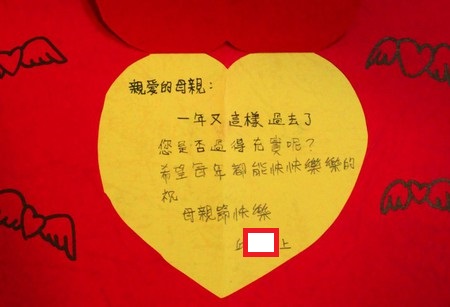 親愛的母親：
一年又這樣過去了
您是否過得充實呢？
希望每年都能快快樂樂的
祝
母親節快樂
上